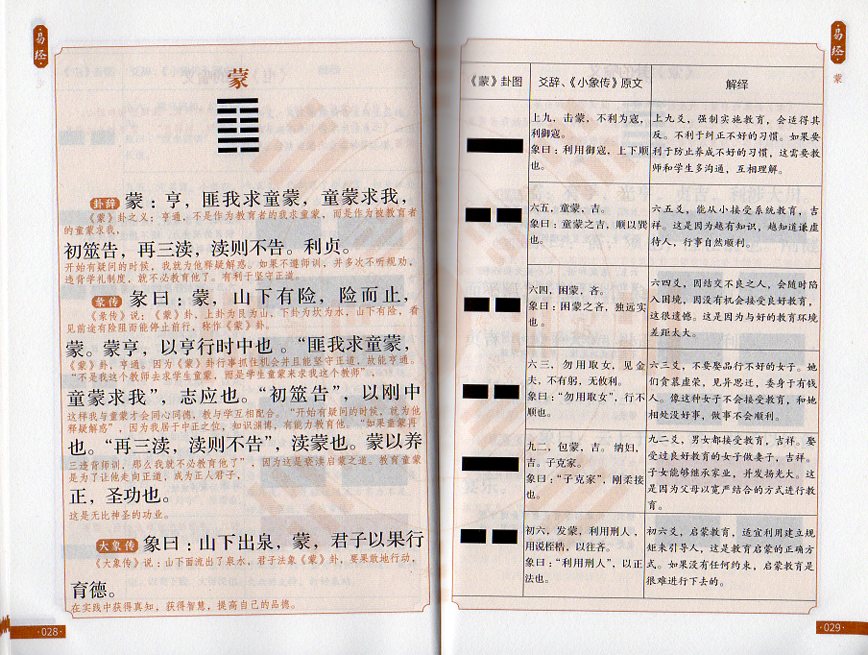 易经
蒙
卦辞 蒙：亨，匪我求童蒙，童蒙求我，
《蒙》卦之义：亨通，不是作为教育者的我求童蒙，而是作为被教育者
的童蒙求我，
初筮告，再三渎，渎则不告。利贞。
开始有疑问的时候，我就为他释疑解惑。如果不遵师训，并多次不听规劝，
违背学礼制度，就不必教育他了。有利于坚守正道。
彖传 彖曰：蒙，山下有险，险而止，
《彖传》说：《蒙》卦，上卦为艮为山，下卦为坎为水，山下有险，看
见前途有险阻而能停止前行，称作《蒙》卦。
蒙。蒙亨，以亨行时中也。“匪我求童蒙，
《蒙》卦，亨通。因为《蒙》卦行事抓住机会并且能坚守正道，故能亨通。
“不是我这个教师去求学生童蒙，而是学生童蒙来求我这个教师”，
童蒙求我”，志应也。“初筮告”，以刚中
这样我与童蒙才会同心同德，教与学互相配合。“开始有疑问的时候，就为他
释疑解惑”，因为我居于中正之位，知识渊博，有能力教育他。“如果童蒙再
也。“再三渎，渎则不告”，渎蒙也。蒙以养
三违背师训，那么我就不必教育他了”，因为这是亵渎启蒙之道。教育童蒙
是为了让他走向正道，成为正人君子，
正，圣功也。
这是无比神圣的功业。
大象传 象曰：山下出泉，蒙，君子以果行
《大象传》说：山下面流出了泉水，君子法象《蒙》卦，要果敢地行动，
育德。
在实践中获得真知，获得智慧，提高自己的品德。
·028·
易经
蒙
《蒙》卦图 爻辞、《小象传》原文 解绎
上九，击蒙，不利为寇，
利御寇。
象曰：利用御寇，上下顺
也。
上九爻，强制实施教育，会适得其
反。不利于纠正不好的习惯。如果要
利于防止养成不好的习惯，这需要教
师和学生多沟通，互相理解。
六五，童蒙，吉。
象曰：童蒙之吉，顺以巽
也。
六五爻，能从小接受系统教育，吉
祥。这是因为越有知识，越知道谦虚
待人，行事自然顺利。
六四，困蒙，吝。
象曰：困蒙之吝，独远实
也。
六四爻，因结交不良之人，会随时陷
入困境，因没有机会接受良好教育，
这很遗憾。这是因为与好的教育环境
差距太大。
六三，勿用取女，见金
夫，不有躬，无攸利。
象曰：“勿用取女”，行不
顺也。
六三爻，不要娶品行不好的女子。她
们贪慕虚荣，见异思迁，委身于有钱
人。像这种女子不会接受教育，和她
相处没好事，做事不会顺利。
九二，包蒙，吉。纳妇，
吉。子克家。
象曰：“子克家”，刚柔接
也。
九二爻，男女都接受教育，吉祥。娶
受过良好教育的女子做妻子，吉祥。
子女能够继承家业，并发扬光大。这
是因为父母以宽严结合的方式进行教
育。
初六，发蒙，利用刑人，
用说桎梏，以往吝。
象曰：“利用刑人”，以正
法也。
初六爻，启蒙教育，适宜利用建立规
矩来引导人，这是教育启蒙的正确方
式。如果没有任何约束，启蒙教育是
很难进行下去的。
·029·